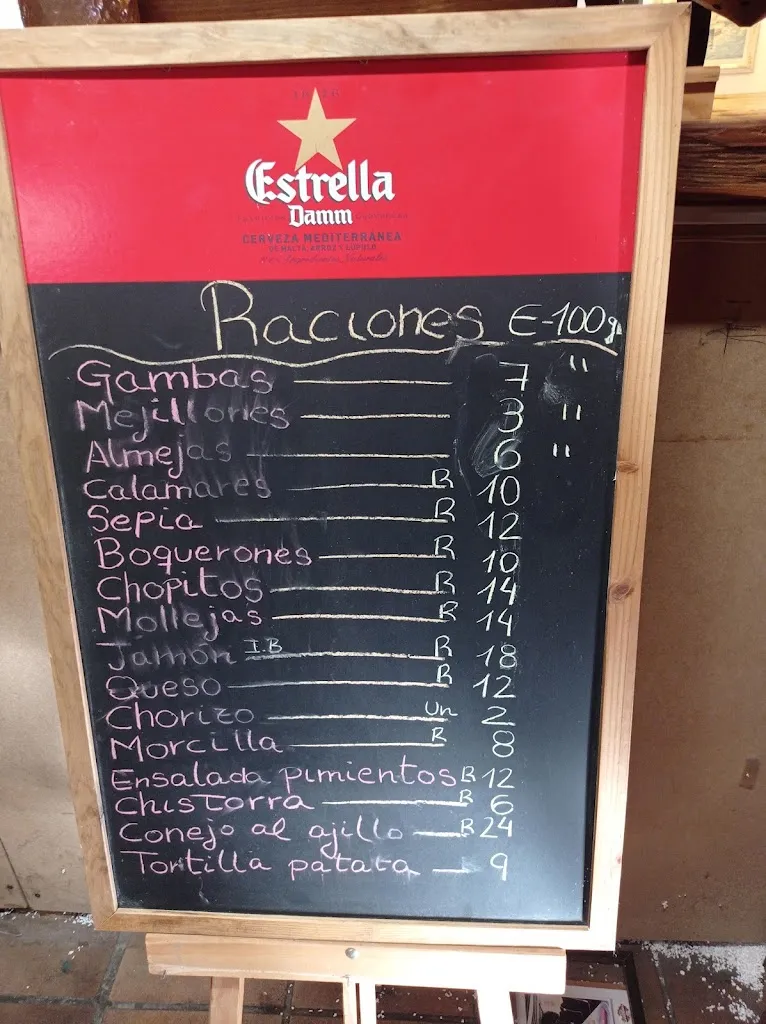 Estrella
Damm
CERVEZA MEDITERRÁNEA
DE MALTA, ARROZ Y LÚPULO
Raciones €-100g
Gambas 7 "
Mejillones 3 "
Almejas 6 "
Calamares R 10
Sepia R 12
Boquerones R 10
Chopitos R 14
Mollejas R 14
Jamón I.B R 18
Queso R 12
Chorizo Un 2
Morcilla R 8
Ensalada pimientos R 12
Chistorra R 6
Conejo al ajillo R 24
Tortilla patata 9